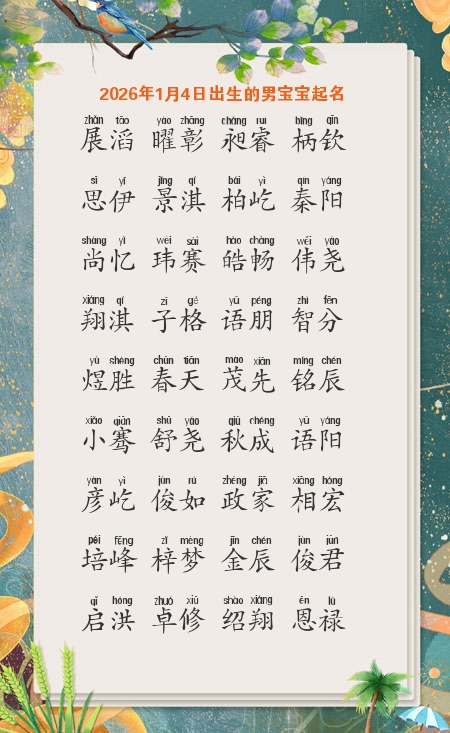 2026年1月4日出生的男宝宝起名
zhǎn tāo yào zhāng chǎng ruì bǐng qīn
展滔 曜彰 昶睿 柄钦
sī yī jǐng qí bǎi yì qín yáng
思伊 景淇 柏屹 秦阳
shàng yì wěi sài hào chàng wěi yáo
尚忆 玮赛 皓畅 伟尧
xiáng qí zǐ gé yǔ péng zhì fēn
翔淇 子格 语朋 智分
yù shèng chūn tiān mào xiān míng chén
煜胜 春天 茂先 铭辰
xiǎo qiān shū yáo qiū chéng yǔ yáng
小骞 舒尧 秋成 语阳
yàn yì jùn rú zhèng jiā xiāng hóng
彦屹 俊如 政家 相宏
péi fēng zǐ mèng jīn chén jùn jūn
培峰 梓梦 金辰 俊君
qǐ hóng zhuó xiū shào xiáng ēn lù
启洪 卓修 绍翔 恩禄